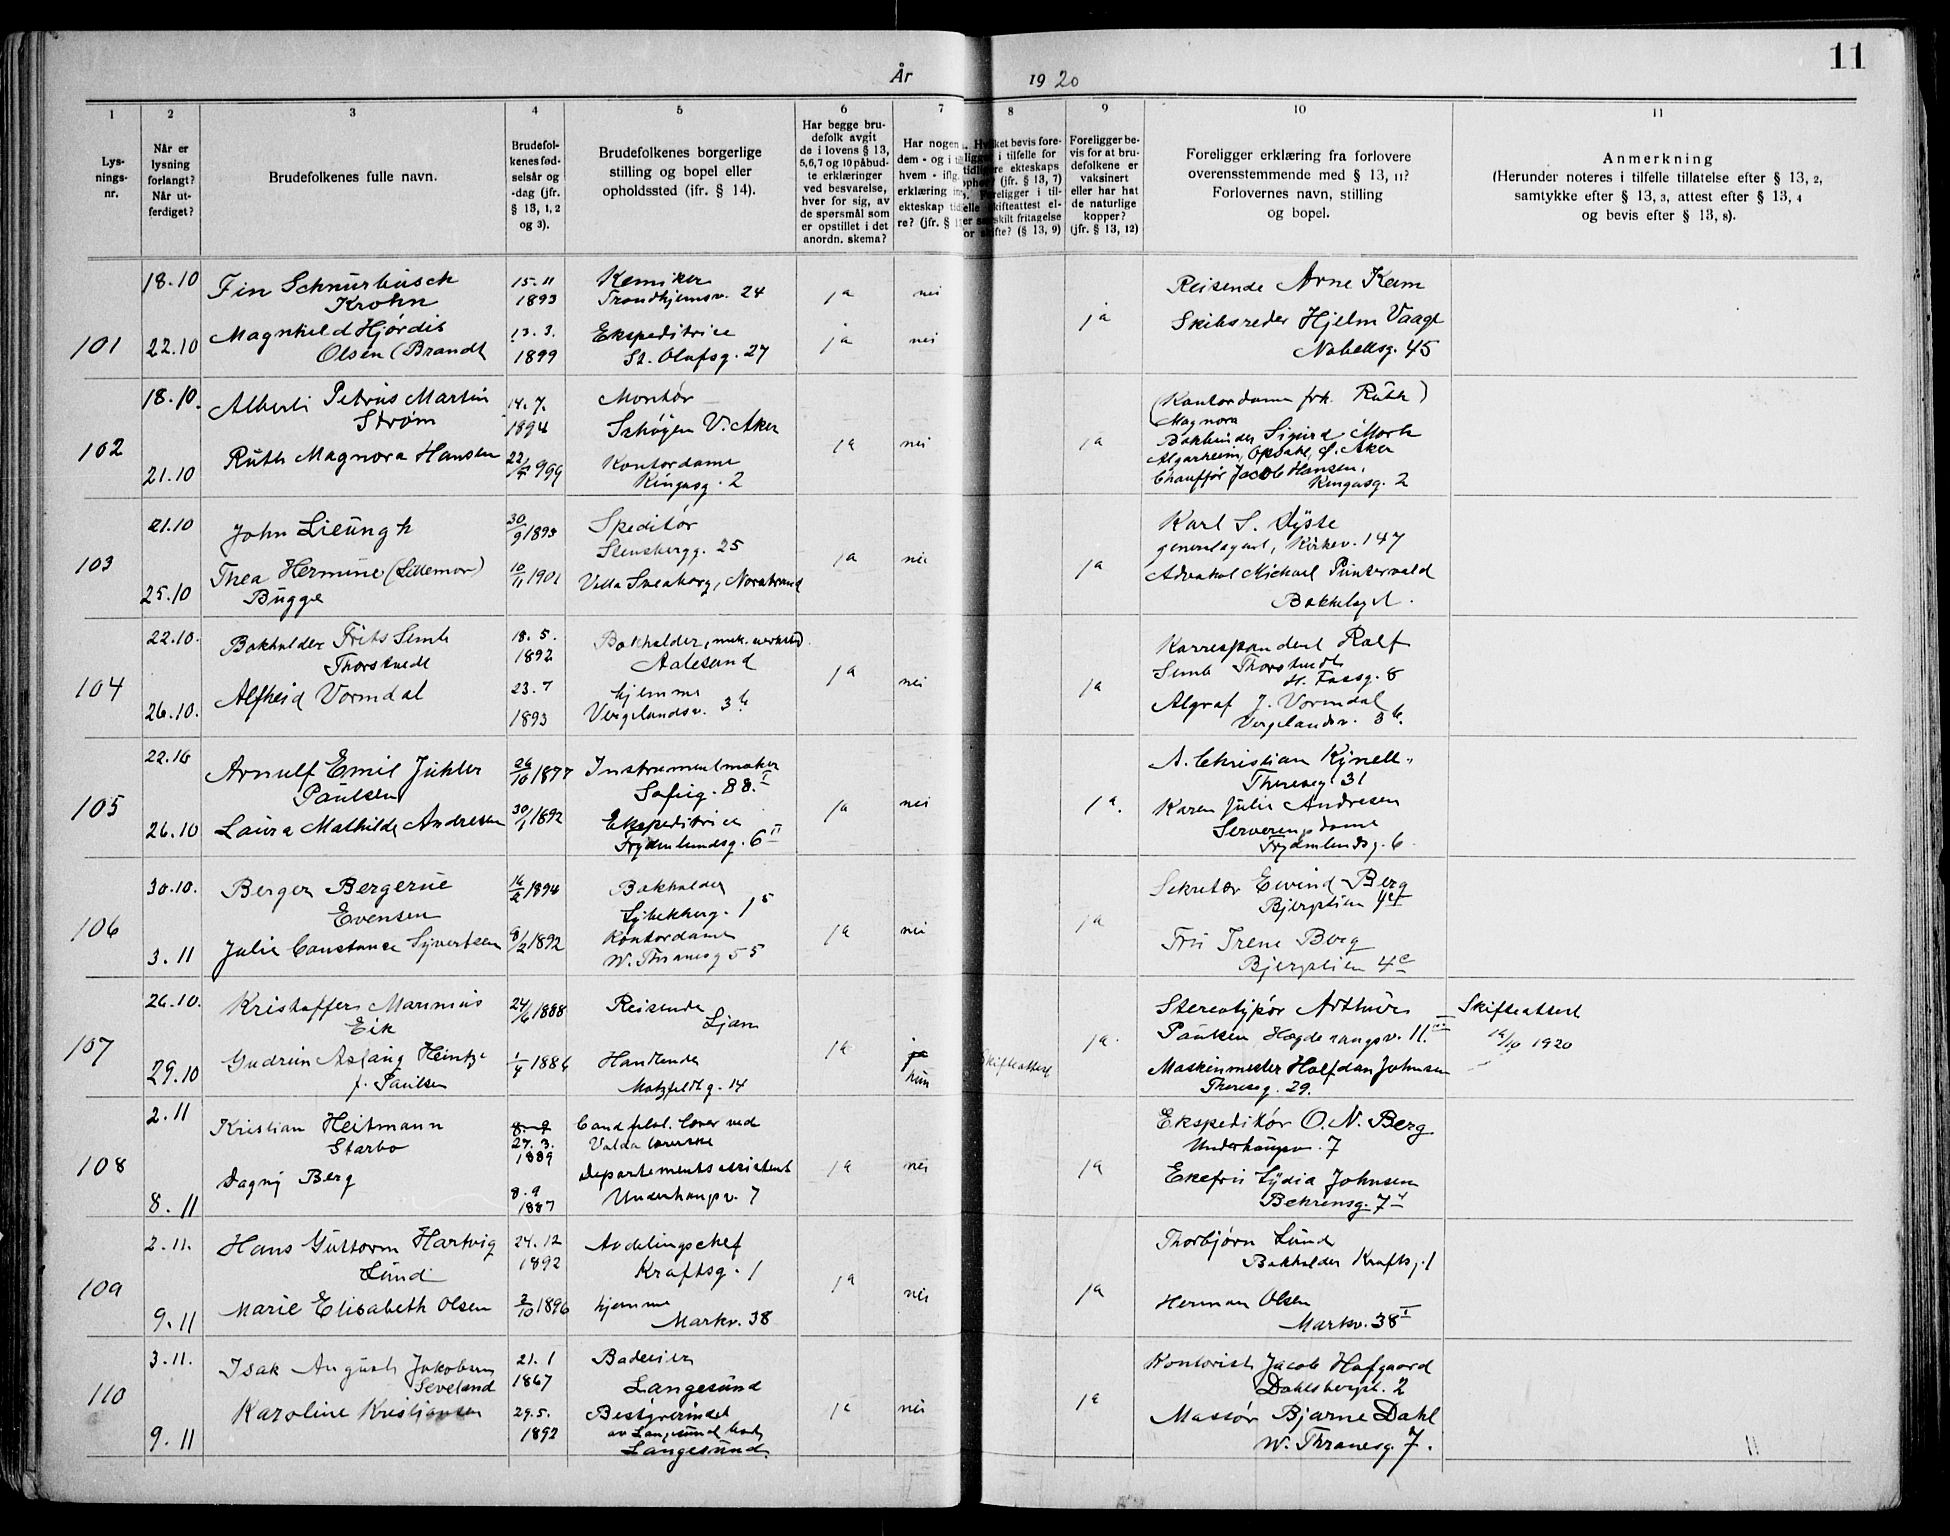 År 1920
11
1 2 3 4 5 6 7 8 9 10 11
Lys-
nings-
nr.
Når er
lysning
forlangt?
Når ut-
ferdiget?
Brudefolkenes fulle navn.
Brudefol-
kenes fød-
selsår og
-dag (jfr.
§ 13, 1, 2
og 3).
Brudefolkenes borgerlige
stilling og bopel eller
opholdssted (ifr. § 14).
Har begge bru-
defolk avgit
de i lovens § 13,
5,6,7 og 10 påbud-
te erklæringer
ved besvarelse,
hver for sig, av
de spørsmål som
er opstillet i det
anordn. skema?
Har nogen
dem - og i
hvem - iflg.
erklæring
ekteskap
re? (jfr. §
bevis fore-
i tilfelle for
ekteskaps
(jfr. § 13, 7)
Foreligger i til-
skifteattest el-
fritagelse
skifte? (§ 13, 9)
Foreligger be-
vis for at bru-
defolkene er
vaksinert
eller har hat
de naturlige
kopper?
(jfr. § 13, 12)
Foreligger erklæring fra forlovere
overensstemmende med § 13, 11?
Forlovernes navn, stilling
og bopel.
Anmerkning
(Herunder noteres i tilfelle tillatelse efter § 13, 2,
samtykke efter § 13, 3, attest efter § 13, 4
og bevis efter § 13, 8).
101
18.10
22.10
Fin Schnurbusch
Krohn
15-11
1893
Kemiker
Trondhjemsv. 24
ja
nei
Magnhild Hjørdis
Olsen (Brandt
13.3.
1899
Ekspeditrice
St. Olafsg. 27
ja
nei
ja
Reisende Arne Keim
Skibsreder Hjelm Vaage
Nobelsg. 45
102
18.10.
21.10
Albert Petrus Martin
Strøm
14.7.
1894
Montør
V. Aker
Ruth Magnora Hansen
Kontordame
Kingosg. 2
ja
nei
ja
(Kontordame frk. Ruth)
Magnora
Bokbinder Sigurd Mork
Algarheim, Opsahl, Ø. Aker
Chauffør Jacob Hansen,
Kingosg. 2
103
21.10
25.10
John Lieungh
30/9 1893
Speditør
Stensbergg. 25
Thea Hermine (Lillemor)
Bugge
10/11 1901
Villa Sveaborg, Nordstrand
ja
nei
ja
Karl S. Dyste
generalagent, Kirkev. 147
Advokat Michael Puntervold
Bækkelaget.
104
22.10.
26.10.
Bokholder Frits Semb
Thorstvedt
18.5.
1892
Bokholder, mek. verksted.
Aalesund
Alfheid Vormdal
23.7
1893
hjemme
Vergelandsv. 3b
ja
nei
ja
Korrespondent Rolf
Semb Thorstvedt
H. Fossg. 8
Algraf J. Vormdal
Vergelandsv. 3b.
105
22.10
26.10
Arnulf Emil Juhler
Paulsen
26/10 1877
Instrumentmaker
Sofieg. 88. I
Laura Mathilde Andresen
30/1 1892
Ekspeditrice
Frydenlundsg. 6 II
ja
nei
ja.
A. Christian Kynell
Theresesg. 31
Karen Julie Andresen
Serveringsdame
Frydenlundsg. 6.
106
30.10.
3.11
Berger Bergerue
Evensen
16/2 1894
Bokholder
Lybekkerg. 15
Julie Constance Syvertsen
8/2 1892
Kontordame
W. Thranesg 55
ja
nei
ja
Sekretær Eivind Berg
Bjergstien 4c
Fru Irene Berg
Bjergstien 4c
107
26.10.
29.10
Kristoffer Marinius
Eik
24/6 1888
Reisende
Ljan
Gudrun Aslaug Heintze
f. Paulsen
1/4 1886
Handlende
Motzfeldtg. 14
ja
ja
hun
Skifteattest
ja.
Stereotypør Arthur
Paulsen Hægdehaugsv. 11.
Maskinmester Halfdan Johnsen
Theresesg. 29.
Skifteattest
19/10 1920
108
2.11
8.11
Kristian Heitmann
Starbo
8.9
27.3.
1889
Cand filol. lærer ved
Volda lærersk
Dagny Berg
8.9
1887
Departementsassistent
Underhaugsv. 7
ja
nei
ja
Ekspeditør O. N. Berg
Underhaugsv. 7
Enkefru Lydia Johnsen
Behrensg. 7
109
2.11.
9.11
Hans Guttorm Hartvig
Lund
24.12
1892
Avdelingschef
Kraftsg. 1
Marie Elisabeth Olsen
2/10 1896
hjemme
Markv. 38
ja
nei
ja
Thorbjørn Lund
Bokholder Kraftsg. 1
Herman Olsen
Markv. 38 I
110
3.11.
9.11
Isak August Jakobsen
Seveland
21.1
1867
Badeeier
Langesund
Karoline Kristiansen
29.5.
1892
Bestyrerinde
av Langesund bad
Langesund.
ja
nei
ja
Kontorist Jacob Hafgaard
Dahlsbergst. 2
Massør Bjarne Dahl
W. Thranesg. 7.
11